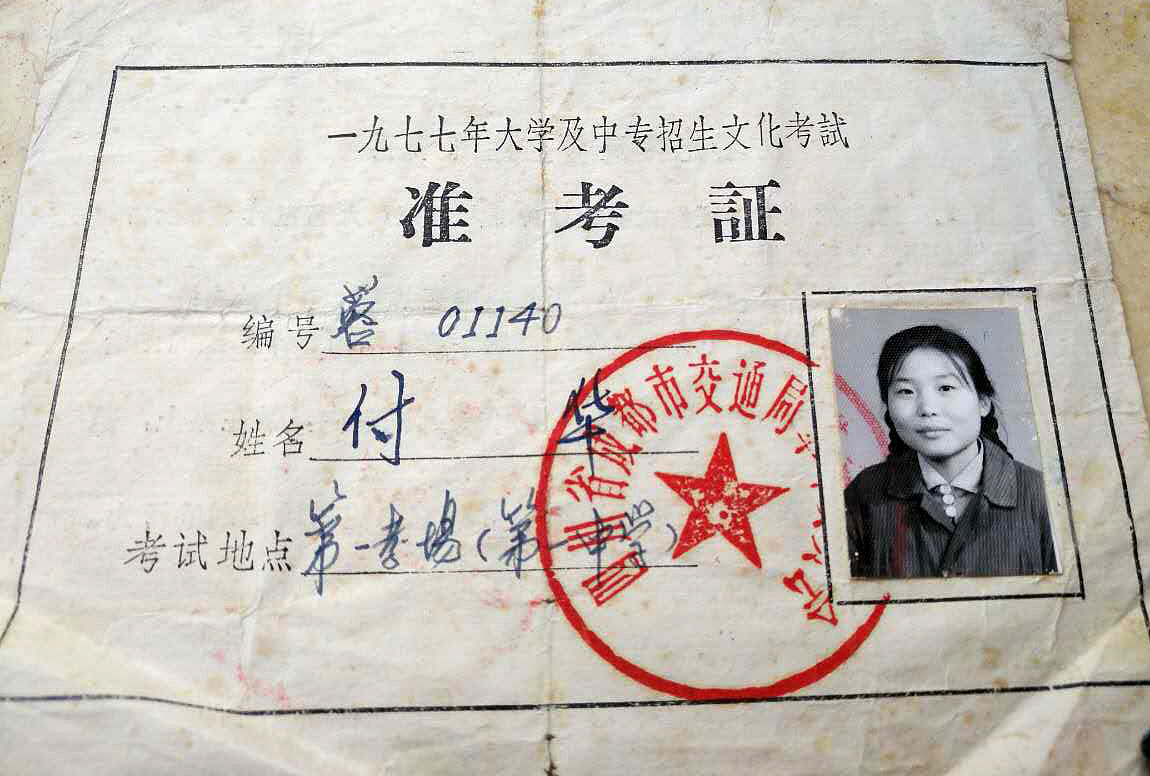 一九七七年大学及中专招生文化考試
准考証
编号 蓉 01140
姓名 付华
考试地点 第一考場(第一中学)
四川省成都市交通局